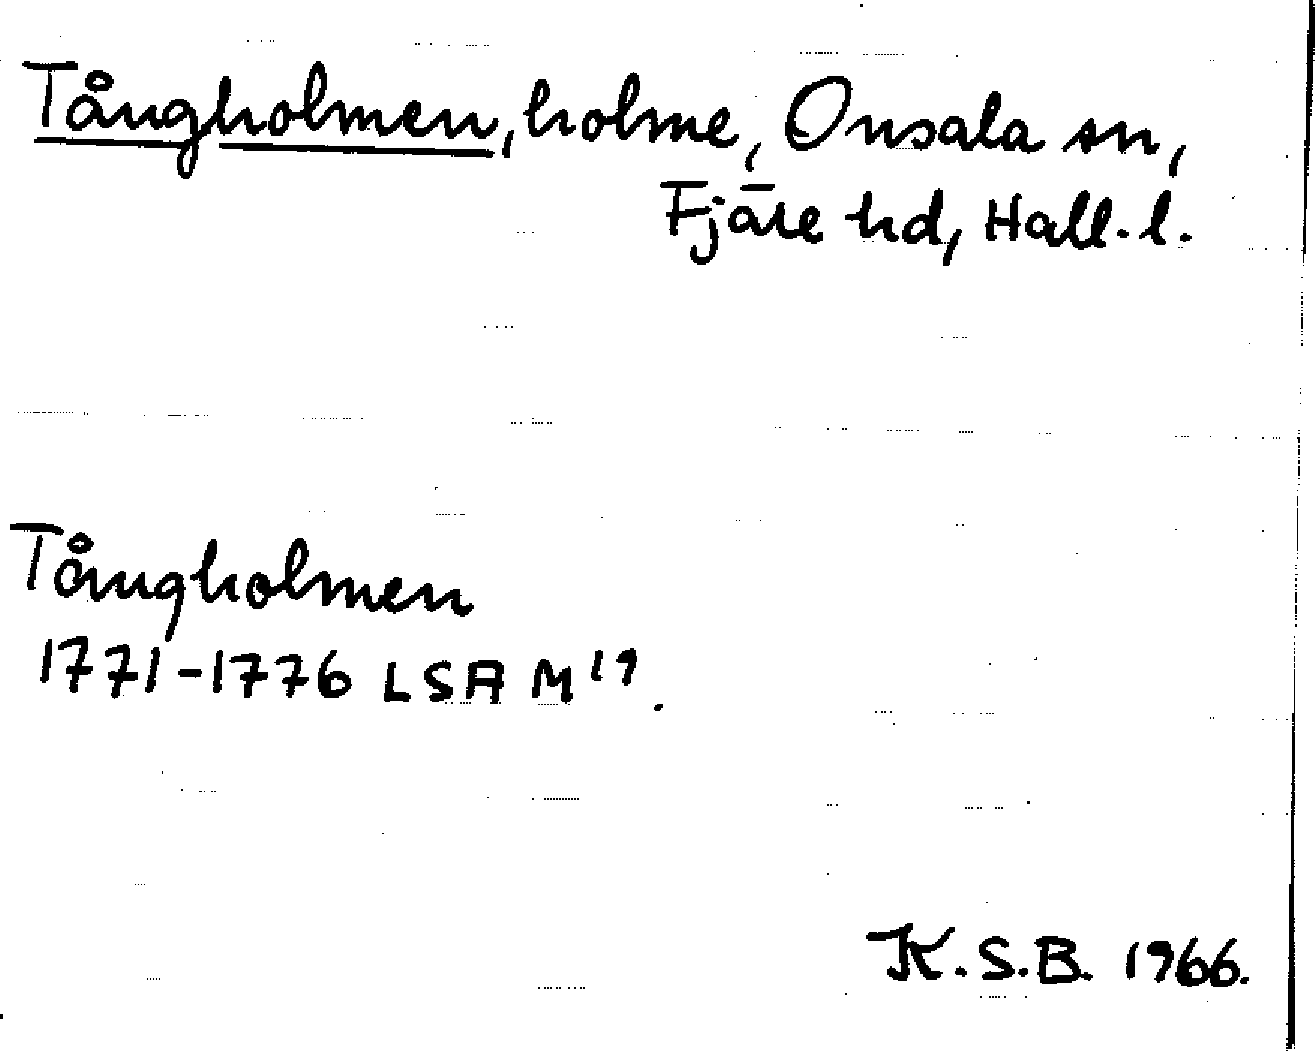 Tångholmen, holme, Onsala sn,
Fjäre hd, Hall. l.
Tångholmen
1771-1776 LSA M 19.
K.S.B. 1966.